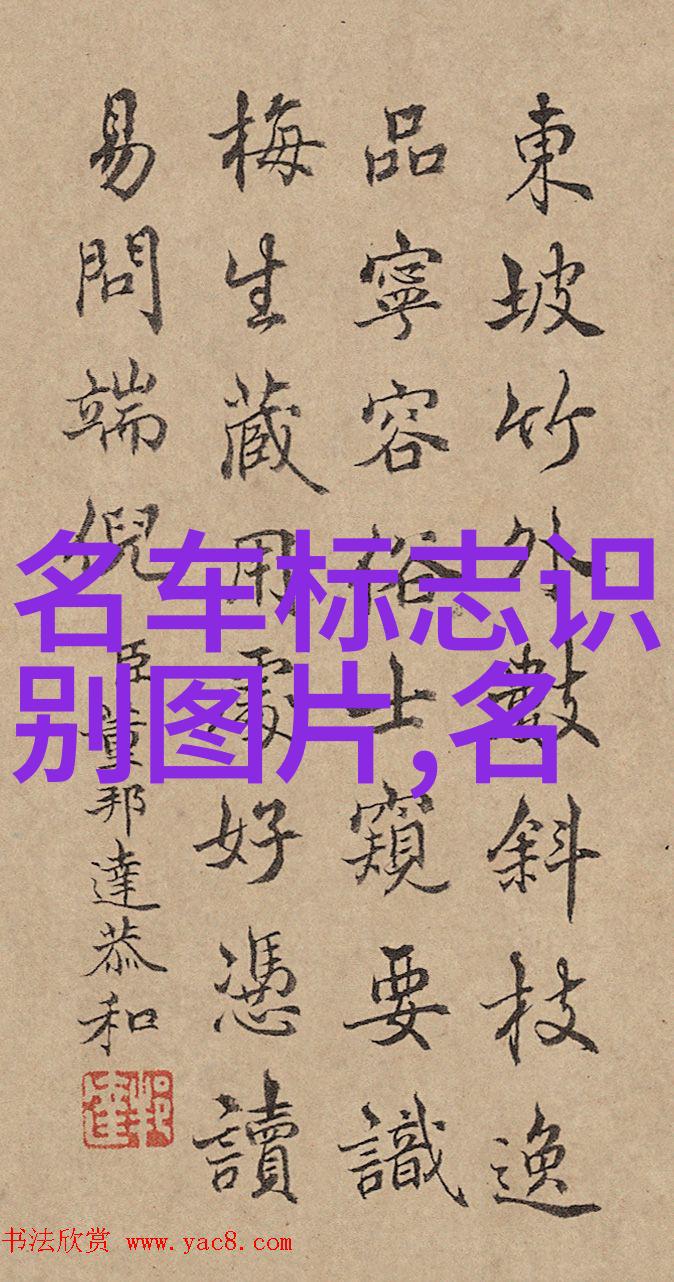 東坡竹外數斜枝逸
品寧容俗士窺要識
梅生藏用處好憑讀
易問端倪 臣董邦達恭和
名车标志识
别图片,名
书法欣赏 www.yac8.com